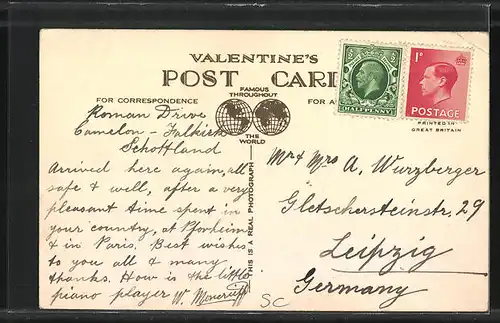 VALENTINE'S
POST CARD
FAMOUS THROUGHOUT
THE WORLD
FOR CORRESPONDENCE
FOR A
HALFPENNY
1D
POSTAGE
PRINTED IN
GREAT BRITAIN
THIS IS A REAL PHOTOGRAPH
Roman Drive
Camelon - Falkirk
Schottland
Arrived here again, all
safe & well, after a very
pleasant time spent in
your country, at Pforheim
& in Paris. Best wishes
to you all & many
thanks. How is the little
piano player W. Moncrieff
SC
Mr & Mrs A. Wurzberger
Gletschersteinstr. 29
Leipzig
Germany